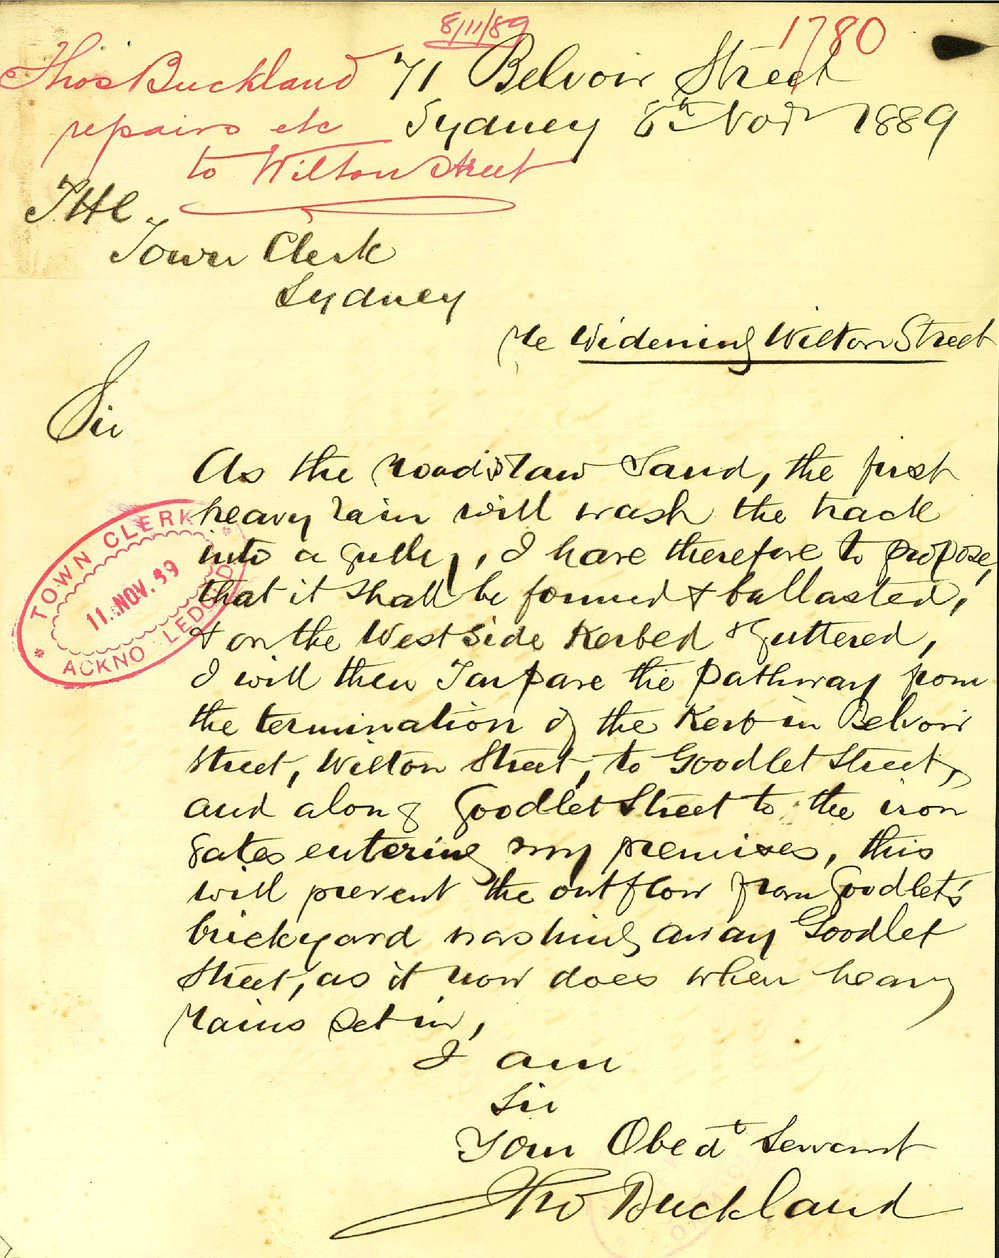 8/11/89
1780
Thos Buckland
repairs etc
to Wilton Street
71 Belvoir Street
Sydney 8th Novr 1889
THE
Town Clerk
Sydney
re Widening Wilton Street
Sir
As the road is raw Sand, the first
heavy rain will wash the track
into a gully, I have therefore to propose,
that it shall be formed & ballasted,
& on the West Side Kerbed & Guttered,
I will then Tarpave the pathway from
the termination of the Kerb in Belvoir
Street, Wilton Street, to Goodlet Street,
and along Goodlet Street to the iron
gates entering my premises, this
will prevent the outflow from Goodlet's
brickyard washing away Goodlet
Street, as it now does when heavy
rains set in,
I am
Sir
Your Obedt Servant
Tho Buckland
TOWN CLERK
11. NOV. 89
ACKNO LEDG D